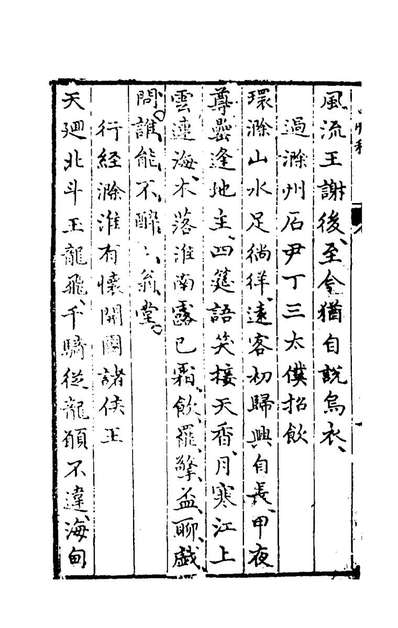 風流王謝後至今猶自說烏衣
過滁州石尹丁三太僕招飲
環滁山水足徜徉遠客初歸興自長甲夜
尊罍逢地主四筵語笑接天香月寒江上
雲連海木落淮南露已霜飲罷擎盃聊戲
問誰能不醉醉翁堂
行經滁淮有懷開國諸侯王
天廻北斗玉龍飛千騎從龍願不違海甸